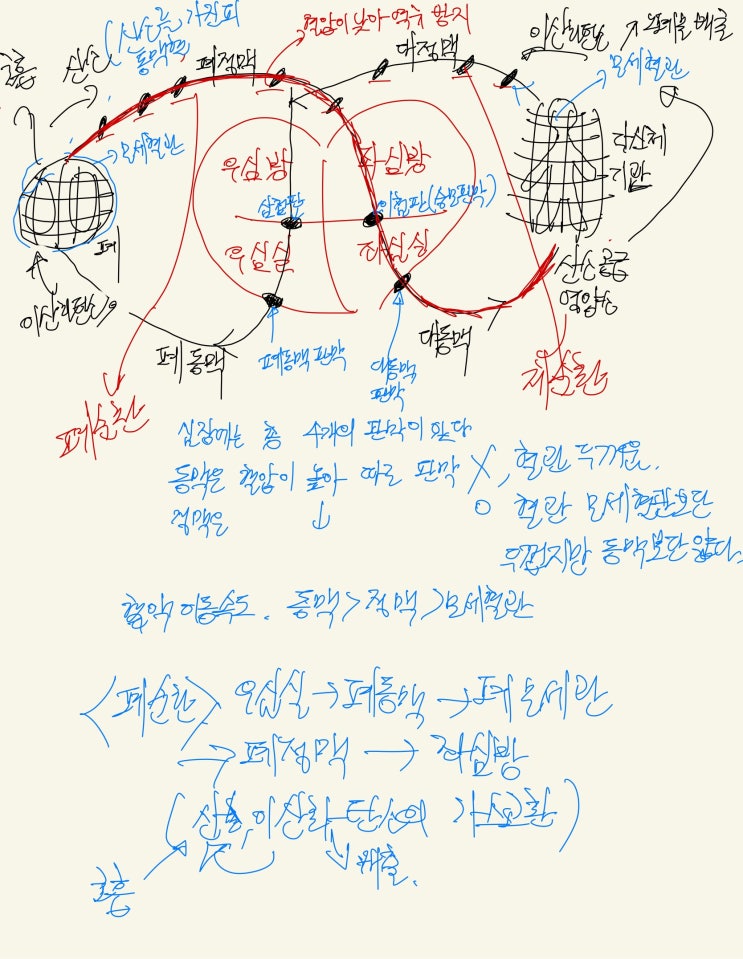 (산소를 가진피
동맥혈
흡
산소
폐정맥
혈압이 낮아 역류 방지
대정맥
이산화탄소
↗ 노폐물 배출
모세혈관
모세혈관
우심방
좌심방
삼첨판
이첨판(승모판막)
우심실
좌심실
폐
이산화탄소
기관
산소공급
영양소
폐동맥
폐동맥 판막
대동맥
판막
대동맥
폐순환
체순환
심장에는 총 4개의 판막이 있다
동맥은 혈압이 높아 따로 판막 X, 혈관 두꺼움.
정맥은 ↓ O 혈관 모세혈관보단
두껍지만 동맥보단 얇다.
혈액 이동속도. 동맥>정맥>모세혈관
<폐순환> 우심실→폐동맥→폐모세관
→폐정맥→좌심방
(산소, 이산화탄소의 가스교환)
배출.